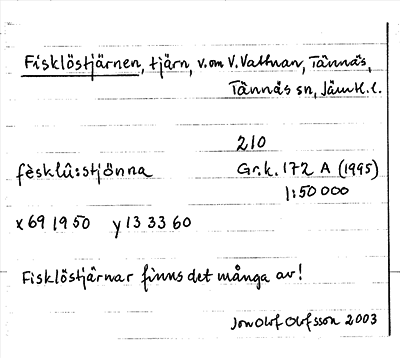 Fisklöstjärnen, tjärn, v. om V. Vattnan, Tännäs,
Tännäs sn, Jämtl. l.
210
fèsklû:stjônna Gr.k. 172 A (1995)
1:50 000
x 69 19 50 y 13 33 60
Fisklöstjärnar finns det många av!
Jon Olof Olofsson 2003